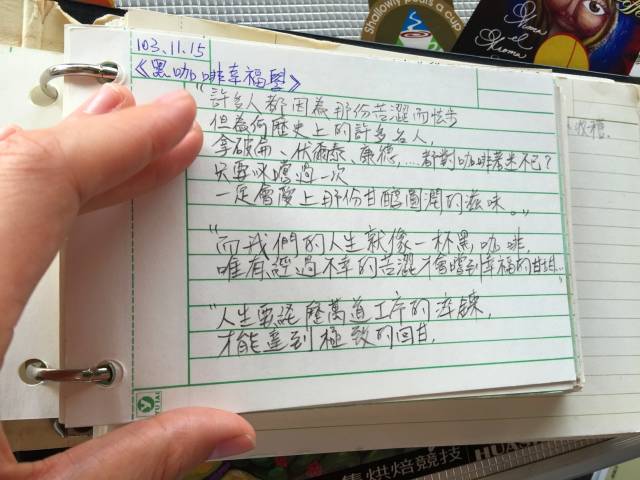 103.11.15
《黑咖啡幸福學》
"許多人都因為那份苦澀而怯步
但為何歷史上的許多名人,
拿破崙、伏爾泰、康德,....都對咖啡著迷不已?
只要以嚐過一次
一定會愛上那份甘醇圓潤的滋味。"
"而我們的人生就像一杯黑咖啡,
唯有經過不幸的苦澀才會嚐到幸福的甘甜..."
"人生要經歷萬道工序的淬鍊,
才能達到極致的回甘,
收穫
a Cup
集烘焙競技